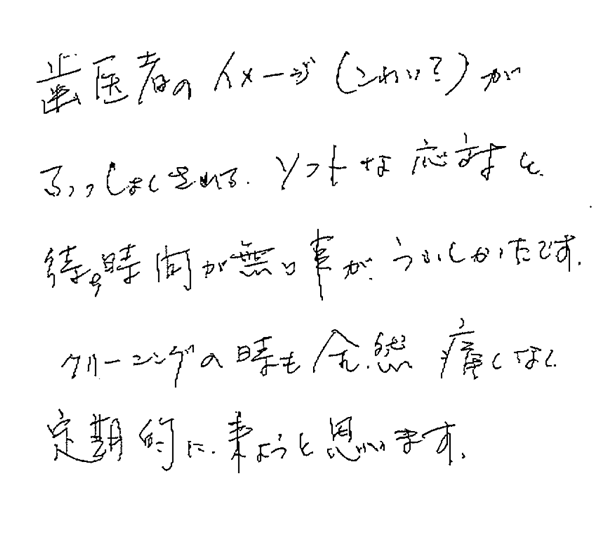 歯医者のイメージ(こわい?)が
ふっしょくされる、ソフトな応対と、
待ち時間が無い事が、うれしかったです。
クリーニングの時も全然痛くなく
定期的に、来ようと思います。